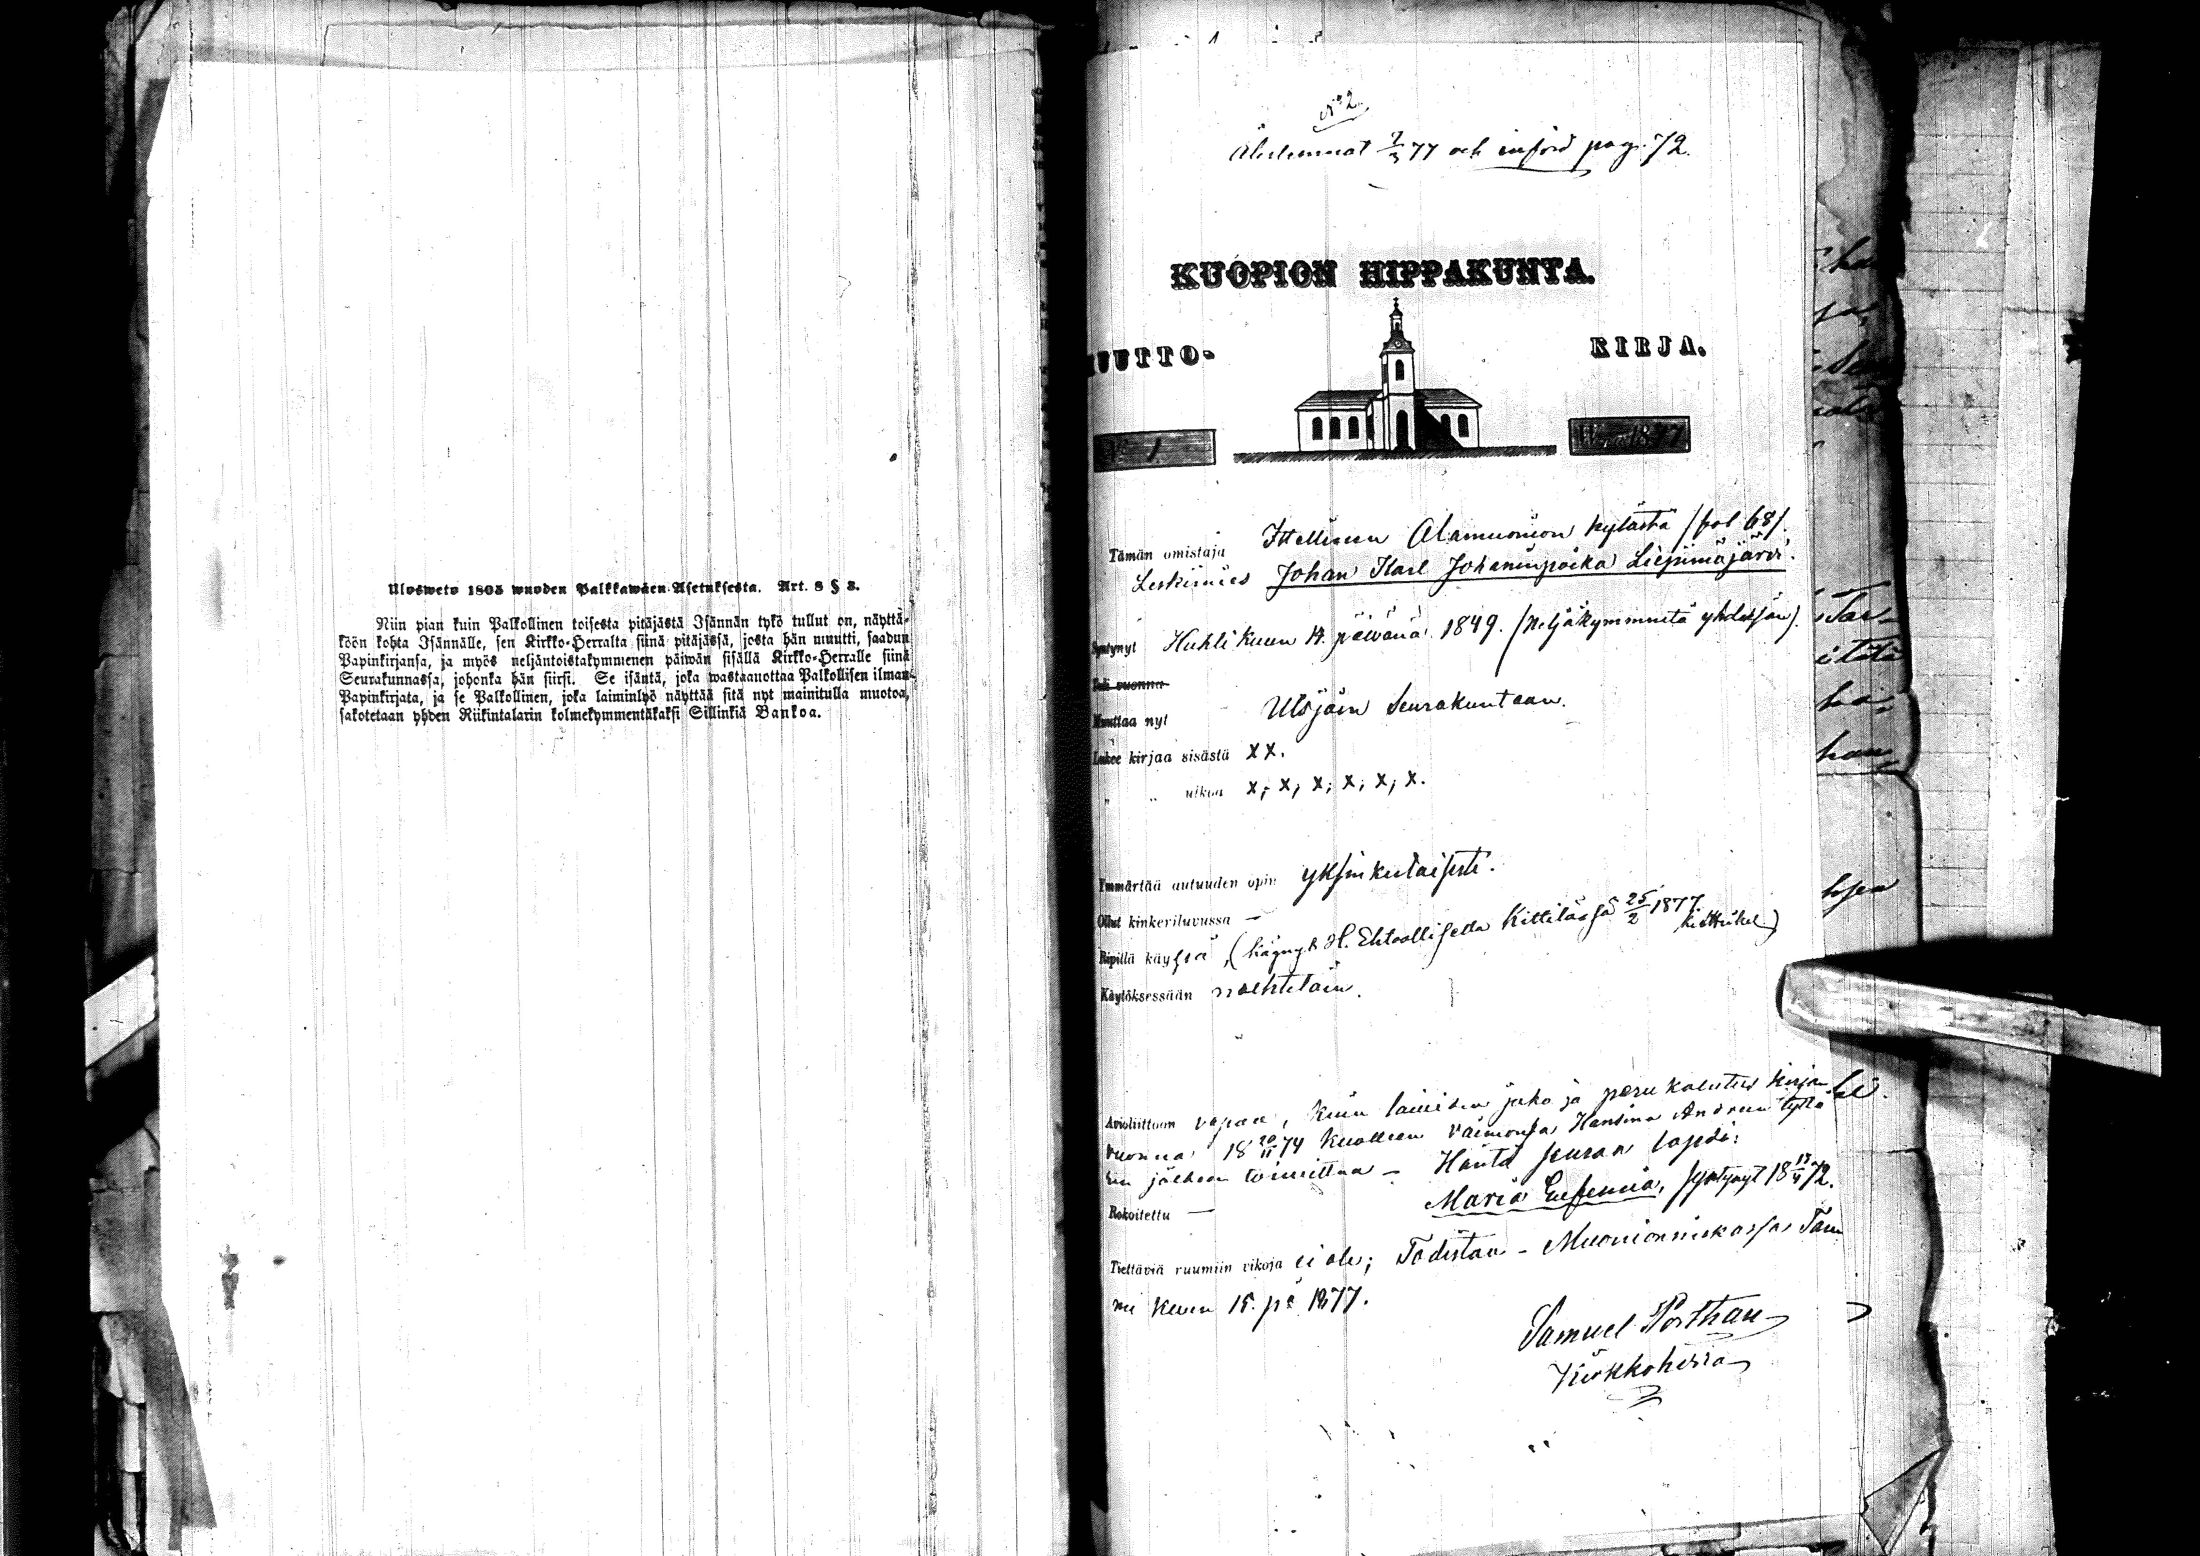 Ulosweto 1805 wuoden Palkkawäen Asetuksesta. Art. 8 § 3.
Niin pian kuin Palkollinen toisesta pitäjästä Isännän tykö tullut on, näyttä-
köön kohta Isännälle, sen Kirkko-Herralta siinä pitäjässä, josta hän muutti, saadun
Papinkirjansa, ja myös neljäntoistakymmenen päiwän sisällä Kirkko-Herralle siinä
Seurakunnassa, johonka hän siirsi. Se isäntä, joka wastaanottaa Palkollisen ilman
Papinkirjata, ja se Palkollinen, joka laiminlyö näyttää sitä nyt mainitulla muotoa,
sakotetaan yhden Riikintalarin kolmekymmentäkaksi Sillinkiä Bankoa.
N:o 2
77 och införd pag. 72.
KUOPION HIPPAKUNTA.
MUUTTO- KIRJA.
N:o 1 1877
Tämän omistaja Itellinen Alamuonion kylästä (fol 68).
Leskimies Johan Karl Johaninpoika Liepimäjärvi.
Syntynyt Huhti kuun 14. päivänä 1849. (Neljäkymmentä yhdeksän).
Tuli vuonna
Muuttaa nyt Utsjoen Seurakuntaan.
Lukee kirjaa sisästä XX.
" " ulkoa x, x, x, x, x, x.
Ymmärtää autuuden opin yksinkertaisesti.
Ollut kinkeriluvussa —
Ripillä käypä, (käynyt H. Ehtoollisella Kittilässä 25/2 1877
Käytöksessään nuhteeton.
Avioliittoon vapaa, kuin laillisen jako ja perukalutus kirjan
vuonna 18 20/11 74 kuolleen vaimonsa Hansina Andreen tytä
ren jälkeen toimittaa — Häntä seuraa lapsi:
Rokoitettu — Maria Eufemia, syntynyt 18 72.
Tiettäviä ruumiin vikoja ei ole; Todistaa — Muonionniskassa Tam
mi kuun 15. p:ä 1877.
Samuel Porthan
Kirkkoherra